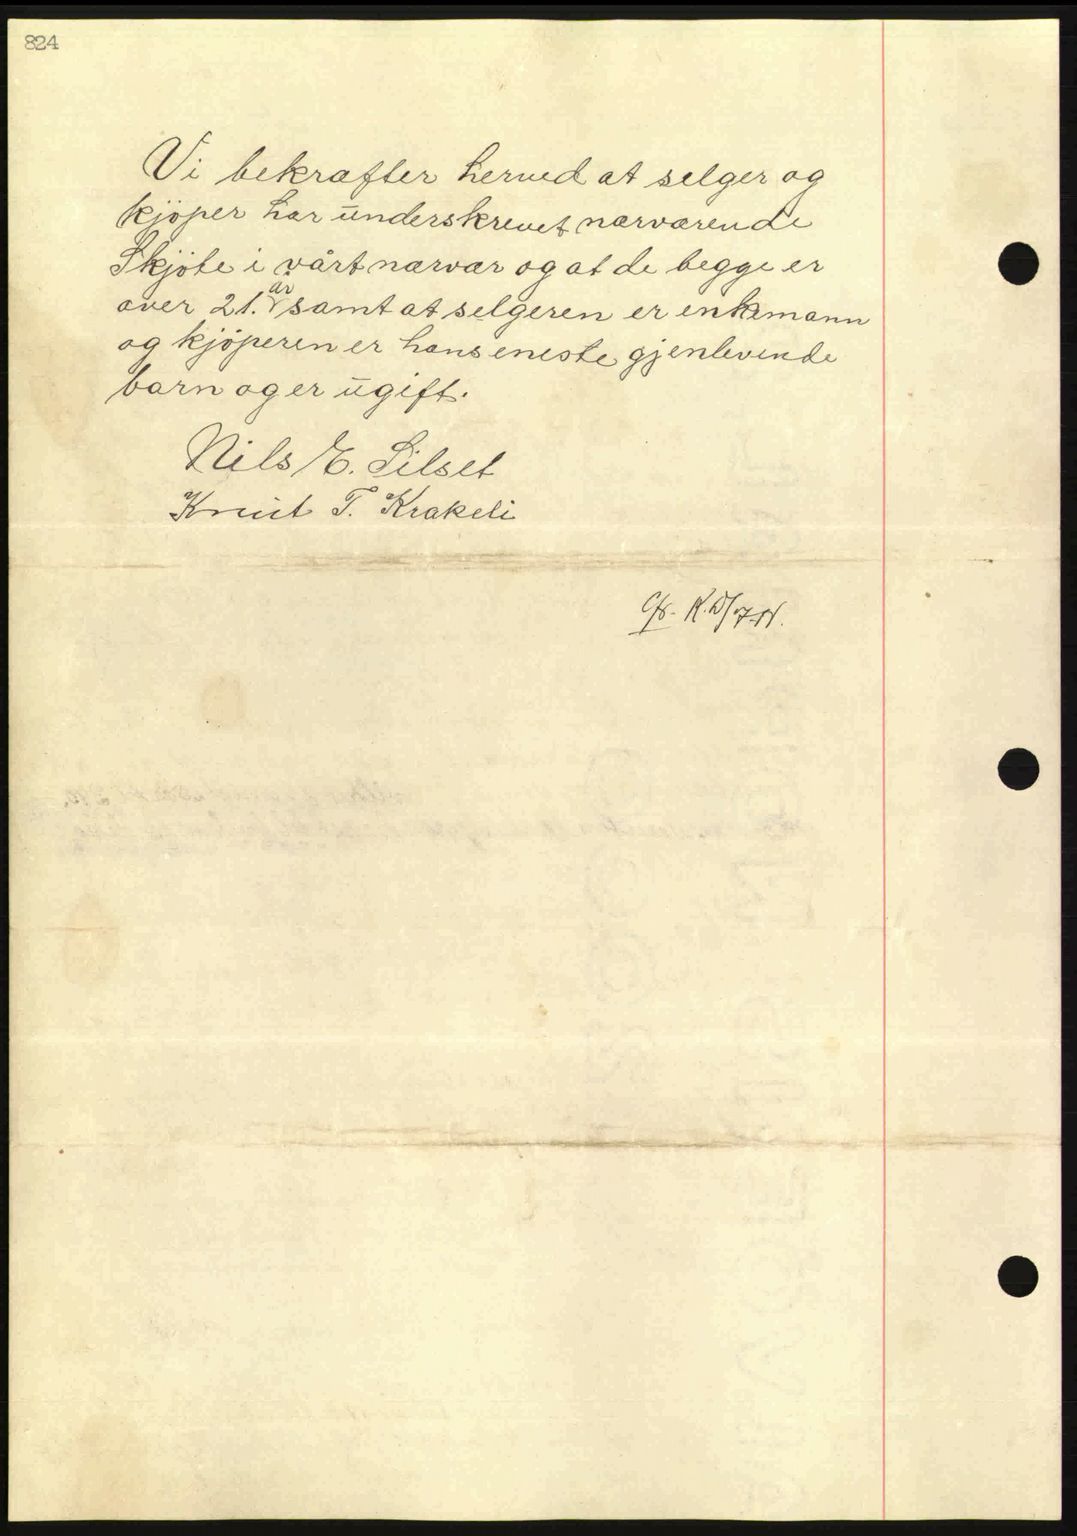 824
Vi bekræfter herved at selger og
kjöper har underskrevet nærværende
Skjöte i vårt nærvær og at de begge er
over 21. år samt at selgeren er enkemann
og kjöperen er hans eneste gjenlevende
barn og er ugift.
Nils E. Silset
Knut T. Krakeli